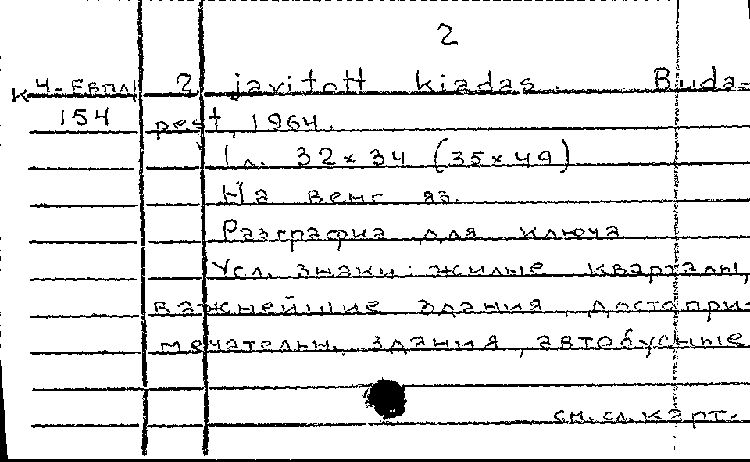 2
К 4-Евпл 2 javitott kiadas. Buda-
154 pest, 1964.
1 л. 32×34 (35×49)
На венг. яз.
Разграфка для ключа
Усл. знаки: жилые кварталы,
важнейшие здания, достопри-
мечательн. здания, автобусные
см. сл. карт.